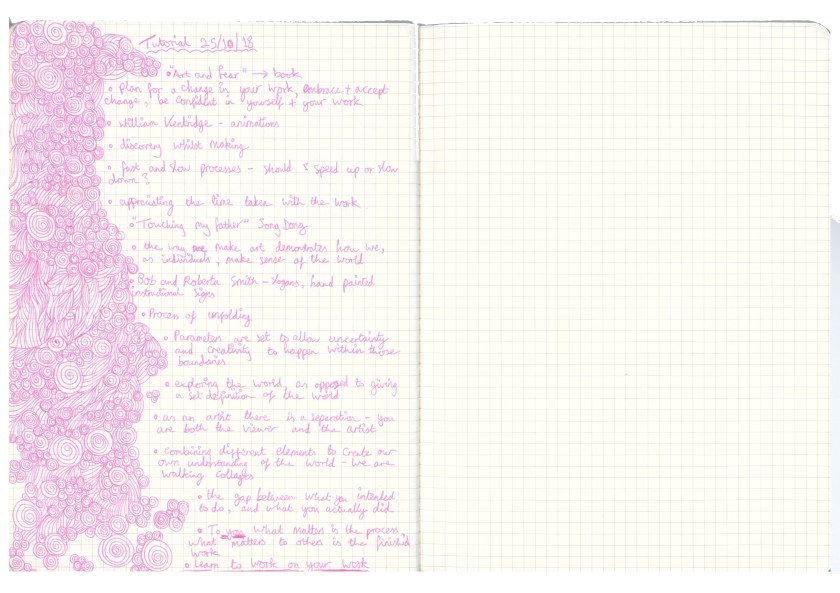 Tutorial 25/10/18
• "Art and Fear" → book
• Plan for a change in your work, embrace + accept
change, be confident in yourself + your work
• William Kentridge - animations
• discovery whilst making
• fast and slow processes - should I speed up or slow
down?
• appreciating the time taken with the work.
• "Touching my father" Song Dong
• the way we make art demonstrates how we,
as individuals, make sense of the world
• Bob and Roberta Smith - slogans, hand painted
instructional signs
• Process of unfolding
• Parameters are set to allow uncertainty
and creativity to happen within those
boundaries
• exploring the world, as opposed to giving
a set definition of the world
• as an artist there is a separation - you
are both the viewer and the artist
• combining different elements to create our
own understanding of the world - we are
walking collages
• the gap between what you intended
to do, and what you actually did
• To you what matters is the process,
what matters to others is the finished
work
• Learn to work on your work